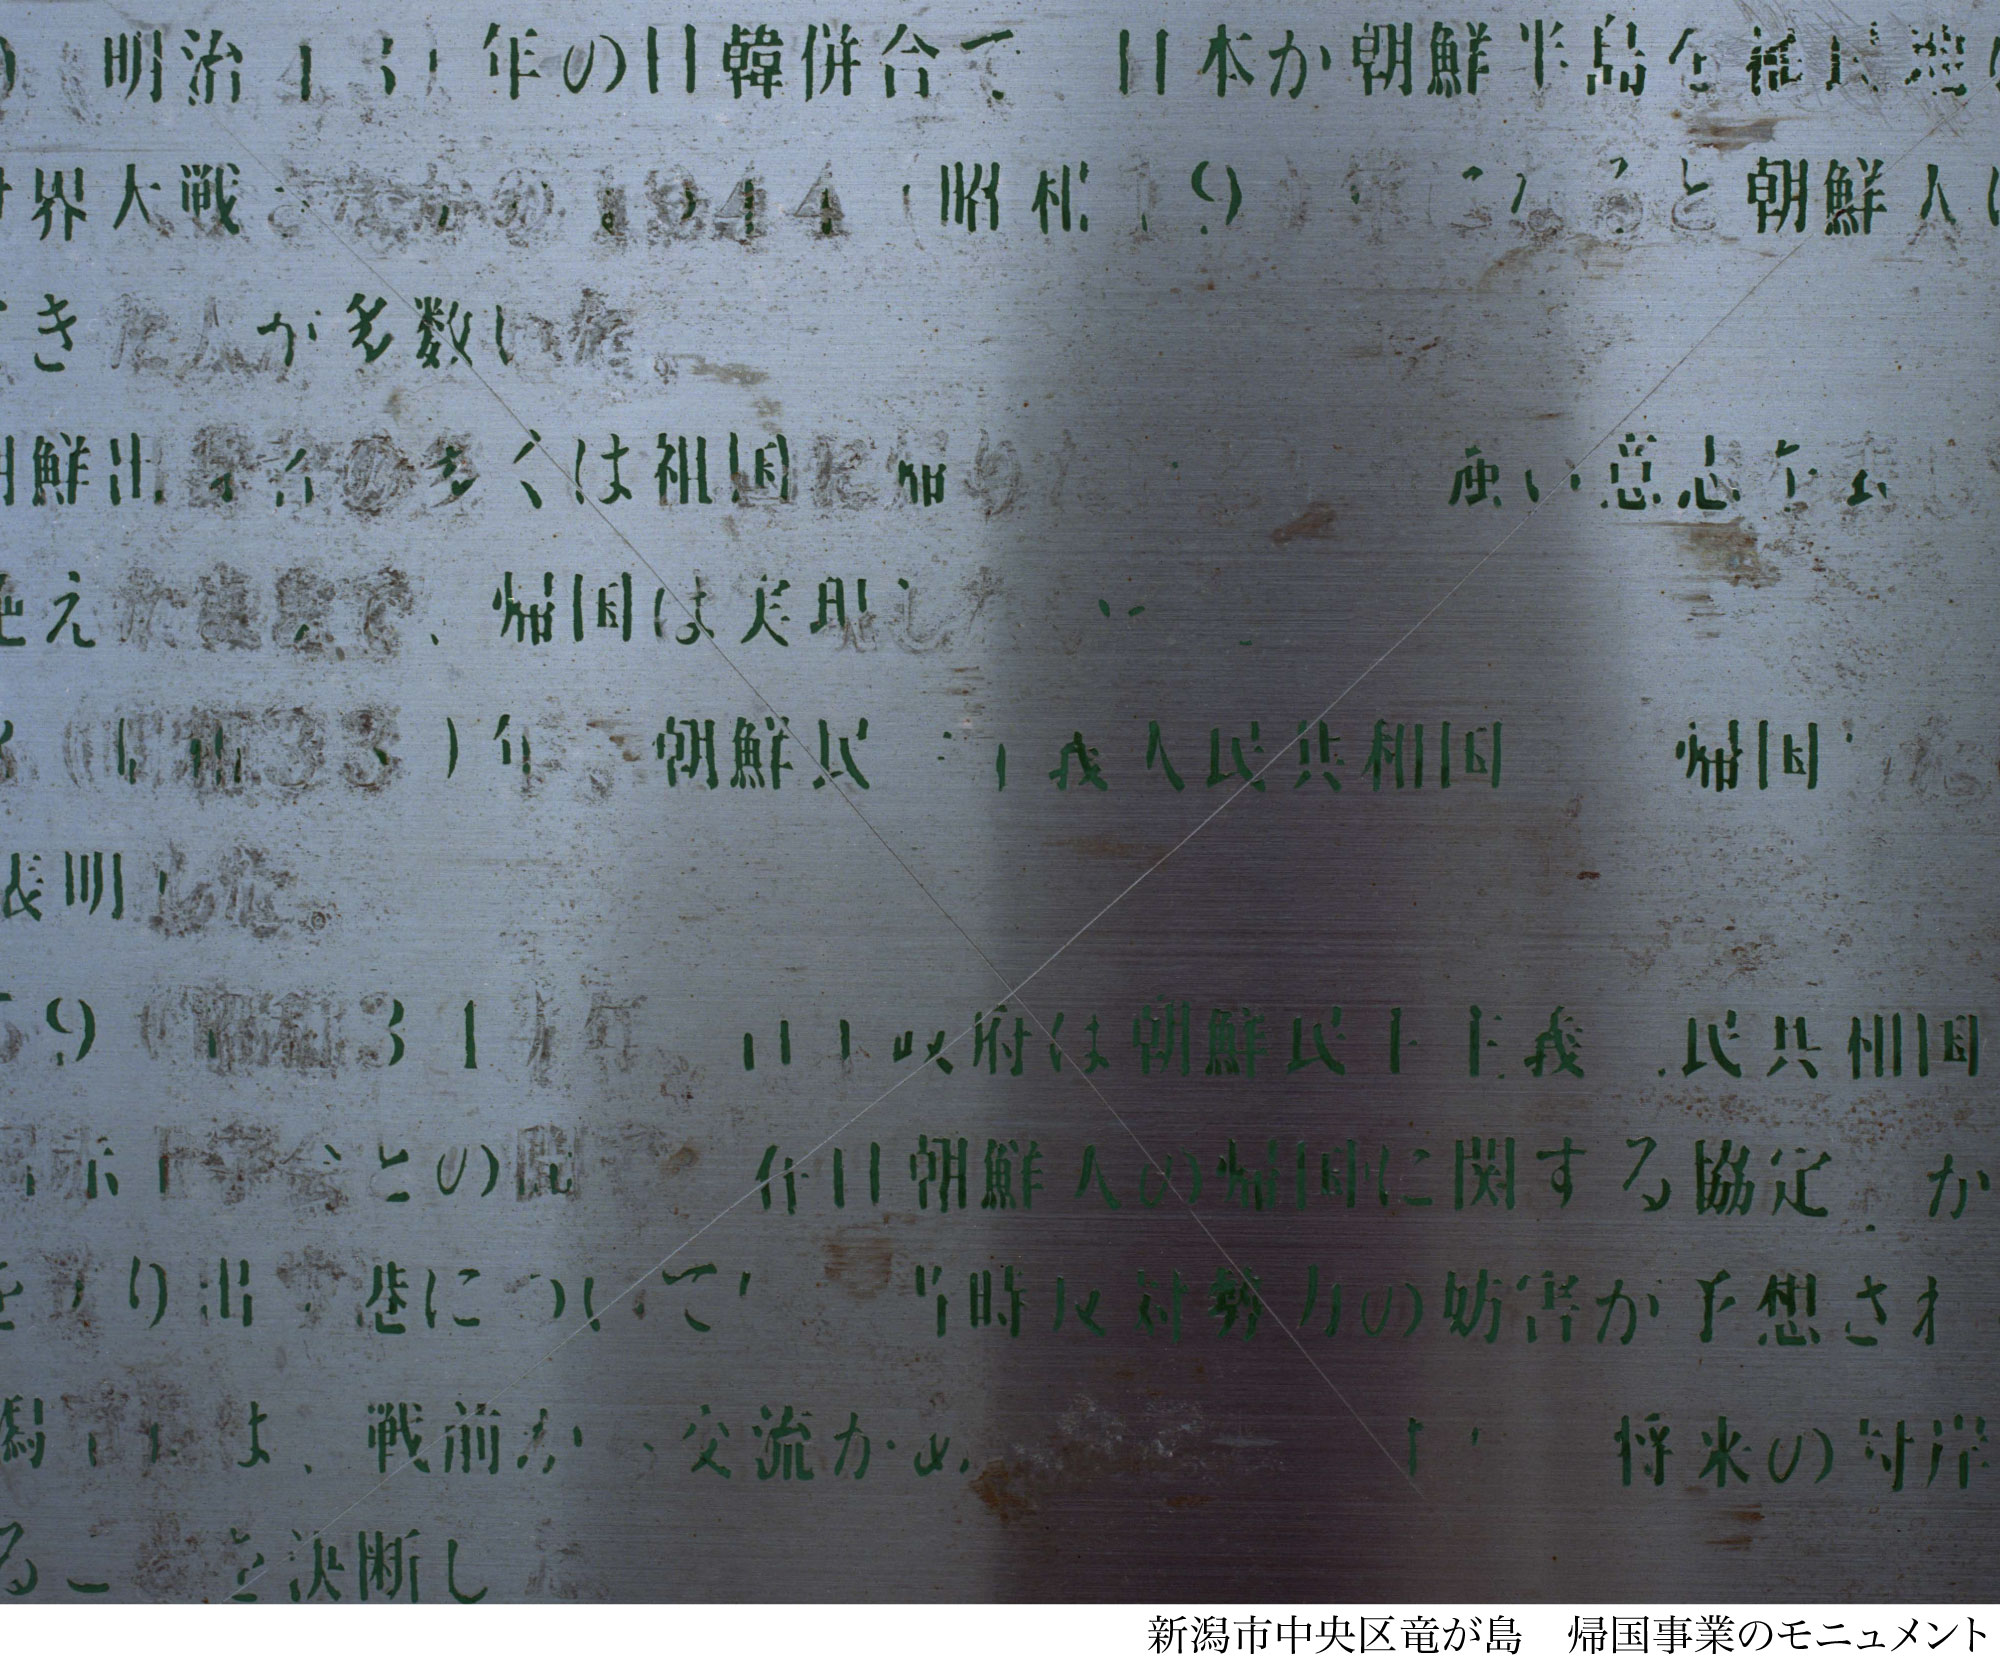 明治43年の日韓併合で 日本が朝鮮半島を植民地
世界大戦さなかの1944(昭和19)年になると朝鮮人
きた人が多数いた。
朝鮮出身者の多くは祖国に帰りた 強い意志を
絶えたままで、帰国は実現しな
(昭和33)年、朝鮮民主主義人民共和国 帰国
表明した。
59(昭和34)年 日本政府は朝鮮民主主義人民共和国
赤十字会との間で 在日朝鮮人の帰国に関する協定 が
を送り出す港について 当時反対勢力の妨害が予想され
潟市は、戦前から交流があ 将来の対岸
ることを決断し
新潟市中央区竜が島　帰国事業のモニュメント